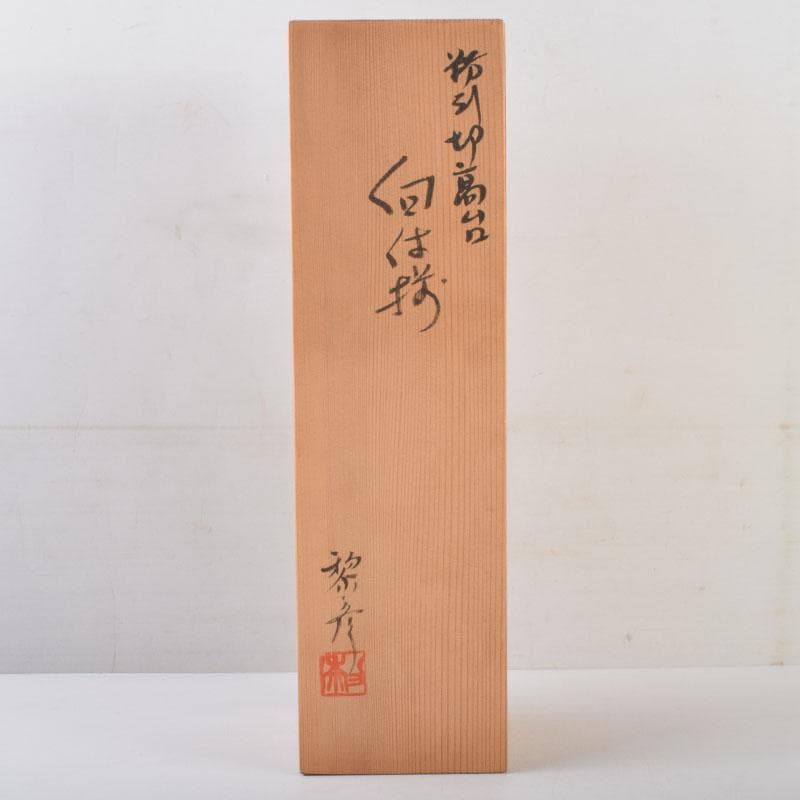 粉引切高台
向付揃
黎彦